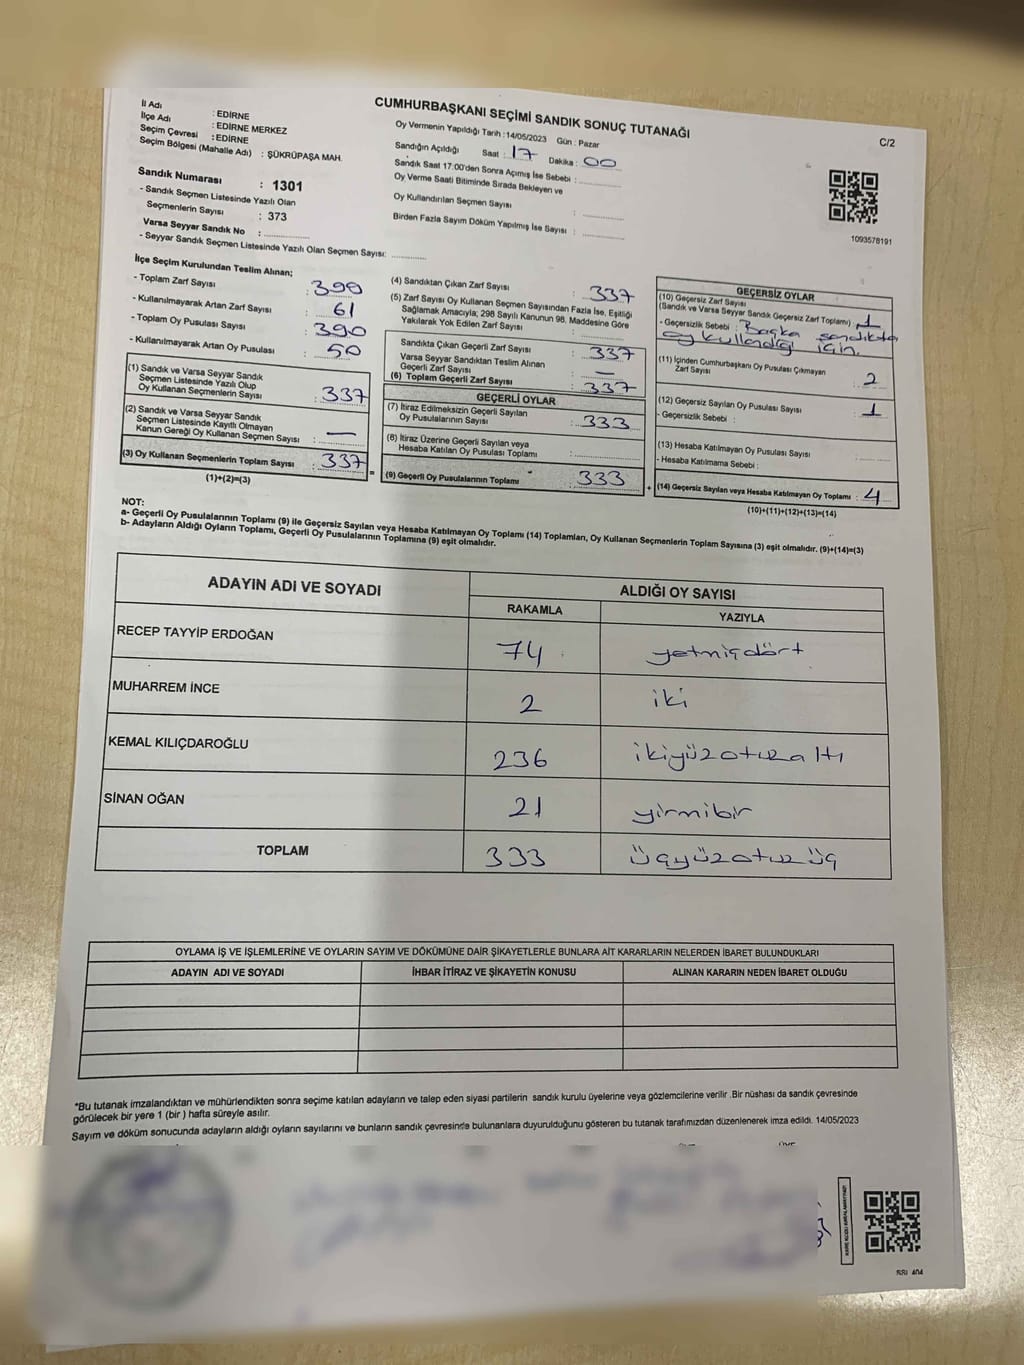 CUMHURBAŞKANI SEÇİMİ SANDIK SONUÇ TUTANAĞI
C/2
İl Adı : EDİRNE
İlçe Adı : EDİRNE MERKEZ
Seçim Çevresi : EDİRNE
Seçim Bölgesi (Mahalle Adı) : ŞÜKRÜPAŞA MAH.
Sandık Numarası : 1301
- Sandık Seçmen Listesinde Yazılı Olan
Seçmenlerin Sayısı : 373
Varsa Seyyar Sandık No :
- Seyyar Sandık Seçmen Listesinde Yazılı Olan Seçmen Sayısı:
Oy Vermenin Yapıldığı Tarih :14/05/2023 Gün : Pazar
Sandığın Açıldığı Saat : 17 Dakika : 00
Sandık Saat 17:00'den Sonra Açımış İse Sebebi :
Oy Verme Saati Bitiminde Sırada Bekleyen ve
Oy Kullandırılan Seçmen Sayısı :
Birden Fazla Sayım Döküm Yapılmış İse Sayısı :
1093578191
İlçe Seçim Kurulundan Teslim Alınan;
- Toplam Zarf Sayısı :
- Kullanılmayarak Artan Zarf Sayısı : 61
- Toplam Oy Pusulası Sayısı : 390
- Kullanılmayarak Artan Oy Pusulası : 50
(1) Sandık ve Varsa Seyyar Sandık
Seçmen Listesinde Yazılı Olup
Oy Kullanan Seçmenlerin Sayısı : 337
(2) Sandık ve Varsa Seyyar Sandık
Seçmen Listesinde Kayıtlı Olmayan
Kanun Gereği Oy Kullanan Seçmen Sayısı : —
(3) Oy Kullanan Seçmenlerin Toplam Sayısı : 337 =
(1)+(2)=(3)
(4) Sandıktan Çıkan Zarf Sayısı : 337
(5) Zarf Sayısı Oy Kullanan Seçmen Sayısından Fazla İse, Eşitliği
Sağlamak Amacıyla; 298 Sayılı Kanunun 98. Maddesine Göre
Yakılarak Yok Edilen Zarf Sayısı
Sandıkta Çıkan Geçerli Zarf Sayısı : 337
Varsa Seyyar Sandıktan Teslim Alınan
Geçerli Zarf Sayısı : —
(6) Toplam Geçerli Zarf Sayısı : 337
GEÇERLİ OYLAR
(7) İtiraz Edilmeksizin Geçerli Sayılan
Oy Pusulalarının Sayısı : 333
(8) İtiraz Üzerine Geçerli Sayılan veya
Hesaba Katılan Oy Pusulası Toplamı :
(9) Geçerli Oy Pusulalarının Toplamı : 333 +
GEÇERSİZ OYLAR
(10) Geçersiz Zarf Sayısı
(Sandık ve Varsa Seyyar Sandık Geçersiz Zarf Toplamı) : 1
- Geçersizlik Sebebi : Başka sandıkta
oy kullandığı için.
(11) İçinden Cumhurbaşkanı Oy Pusulası Çıkmayan
Zarf Sayısı : 2
(12) Geçersiz Sayılan Oy Pusulası Sayısı : 1
- Geçersizlik Sebebi :
(13) Hesaba Katılmayan Oy Pusulası Sayısı
- Hesaba Katılmama Sebebi :
(14) Geçersiz Sayılan veya Hesaba Katılmayan Oy Toplamı : 4
(10)+(11)+(12)+(13)=(14)
NOT:
a- Geçerli Oy Pusulalarının Toplamı (9) ile Geçersiz Sayılan veya Hesaba Katılmayan Oy Toplamı (14) Toplamları, Oy Kullanan Seçmenlerin Toplam Sayısına (3) eşit olmalıdır. (9)+(14)=(3)
b- Adayların Aldığı Oyların Toplamı, Geçerli Oy Pusulalarının Toplamına (9) eşit olmalıdır.
ADAYIN ADI VE SOYADI ALDIĞI OY SAYISI
RAKAMLA YAZIYLA
RECEP TAYYİP ERDOĞAN 74 yetmişdört
MUHARREM İNCE 2 iki
KEMAL KILIÇDAROĞLU 236 ikiyüzotuzaltı
SİNAN OĞAN 21 yirmibir
TOPLAM 333 üçyüzotuzüç
OYLAMA İŞ VE İŞLEMLERİNE VE OYLARIN SAYIM VE DÖKÜMÜNE DAİR ŞİKAYETLERLE BUNLARA AİT KARARLARIN NELERDEN İBARET BULUNDUKLARI
ADAYIN ADI VE SOYADI İHBAR İTİRAZ VE ŞİKAYETİN KONUSU ALINAN KARARIN NEDEN İBARET OLDUĞU
*Bu tutanak imzalandıktan ve mühürlendikten sonra seçime katılan adayların ve talep eden siyasi partilerin sandık kurulu üyelerine veya gözlemcilerine verilir .Bir nüshası da sandık çevresinde
görülecek bir yere 1 (bir ) hafta süreyle asılır.
Sayım ve döküm sonucunda adayların aldığı oyların sayılarını ve bunların sandık çevresinde bulunanlara duyurulduğunu gösteren bu tutanak tarafımızdan düzenlenerek imza edildi. 14/05/2023
KARE KODU KARALAMAYINIZ!